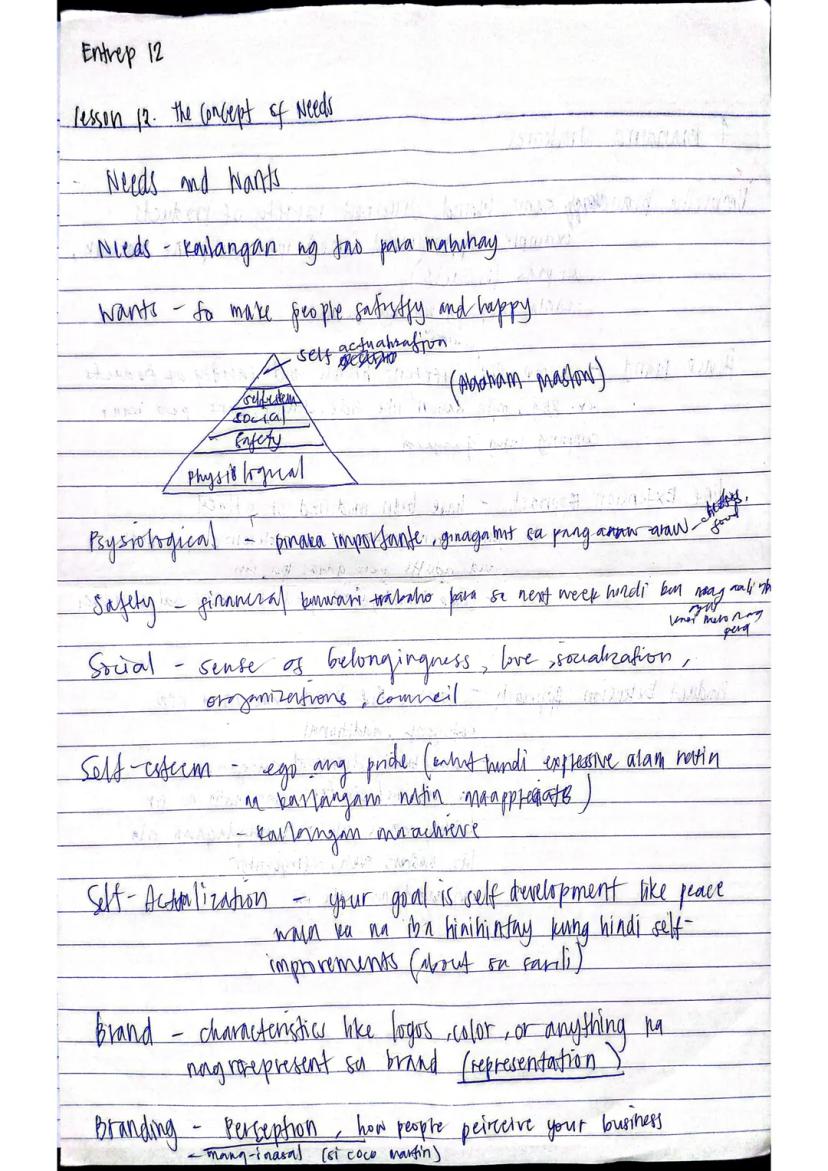 Entrep 12
Lesson 12. The Concept of Needs
- Needs and Wants
Needs - kailangan ng tao para mabuhay
Wants - to make people satistfy and happy
self actualization
(Abraham Maslow)
selfesteem
social
safety
Physiological
Psysiological - pinaka importante, ginagamit sa pang araw-araw - clothes,
food
Safety - financial kunwari trabaho para sa next week hindi kun mag
pera
Social - sense of belongingness, love, socialization,
organizations, council
Self-esteem - ego ang pride (kahit hindi expressive alam natin
na kailangan natin maappreciate)
- kailangan ma achieve
Self-Actualization - your goal is self development like peace
wala ka na iba hinihintay kung hindi self-
improvements (about sa sarili)
Brand - characteristics like logos, color, or anything na
nagrerepresent sa brand (representation)
Branding - Perception, how people peirceive your business
- mang-inasal (si coco martin)